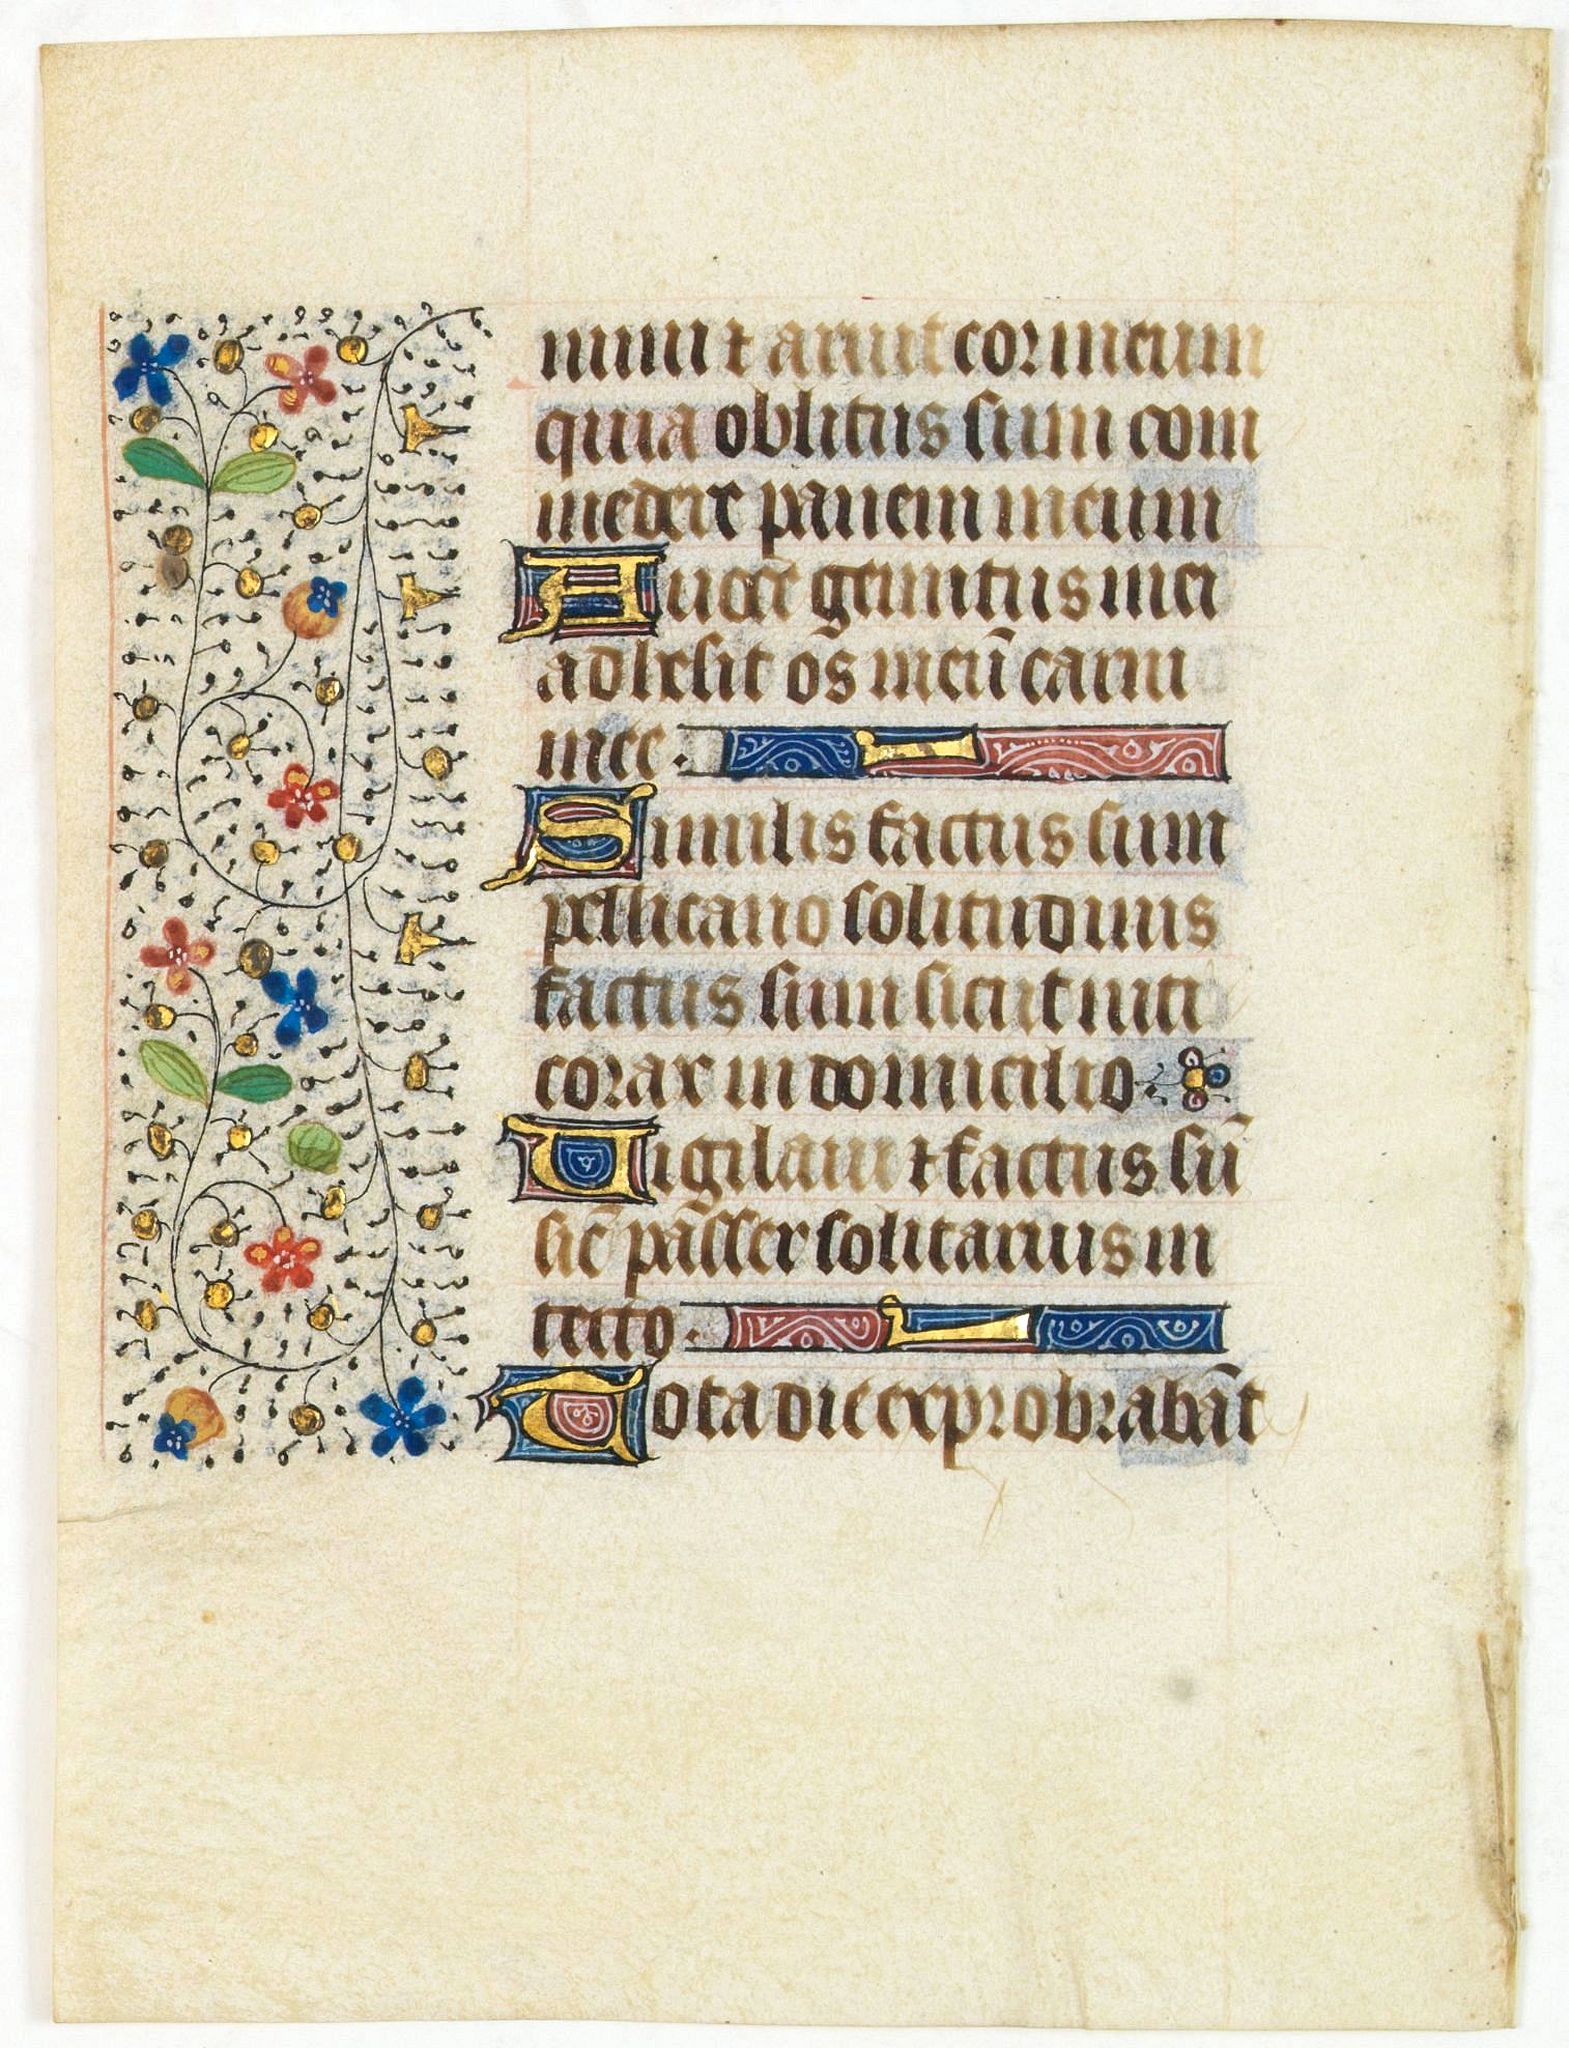 num ⁊ aruit cor meum
quia oblitus sum com
medere panem meum
A uoce gemitus mei
adhesit os meū carni
mee.
Similis factus sum
pellicano solitudinis
factus sum sicut niti
corax in domicilio
Vigilaui ⁊ factus sū
sic̄ passer solitarius in
tecto.
Tota die exprobrabāt